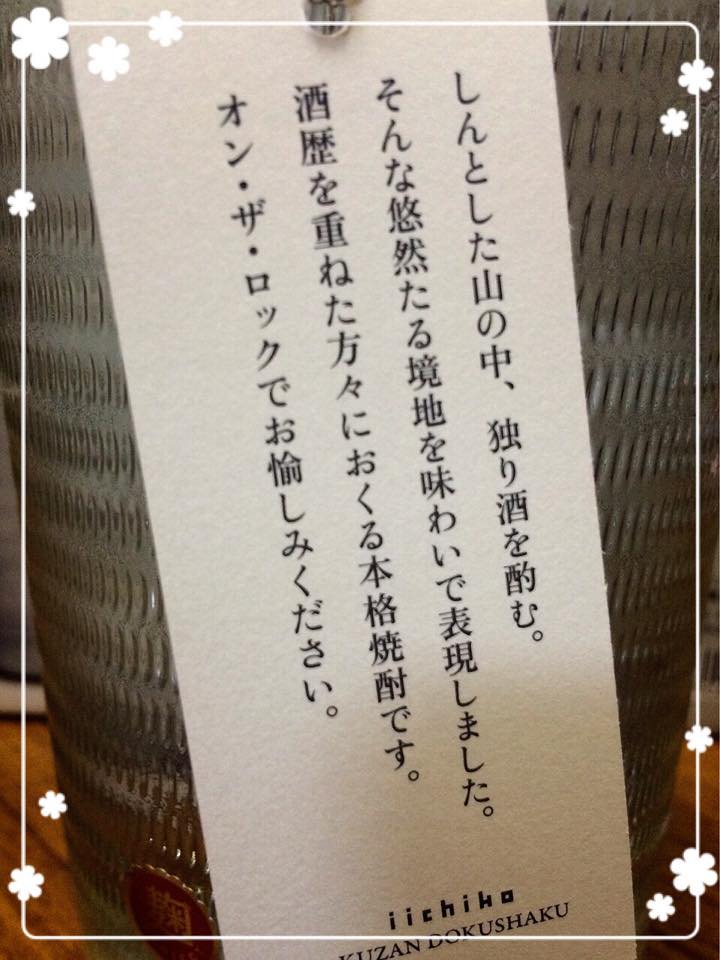 しんとした山の中、独り酒を酌む。
そんな悠然たる境地を味わいで表現しました。
酒歴を重ねた方々におくる本格焼酎です。
オン・ザ・ロックでお愉しみください。
iichiko
KUZAN DOKUSHAKU